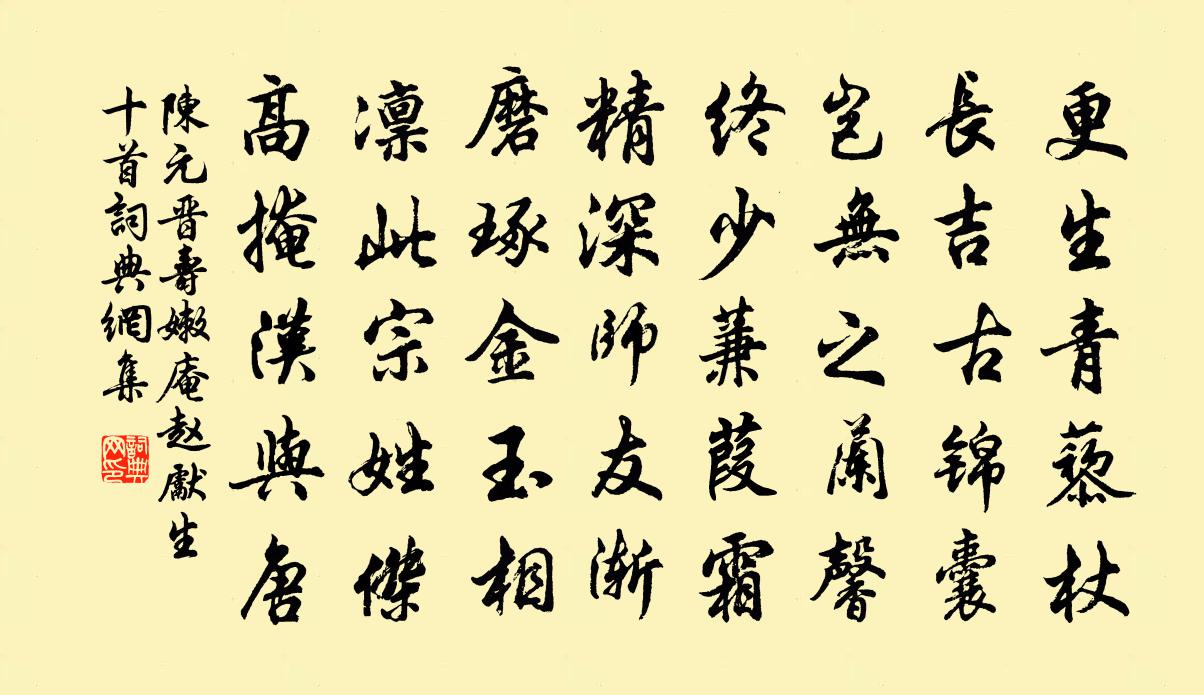 更生青藜杖
長吉古锦囊
豈無之蘭馨
终少蒹葭霜
精深師友渐
磨琢金玉相
凛此宗姓傑
高掩漢與唐
陳元晋壽嫩庵赵獻生
十首詞典網集
詞典网印